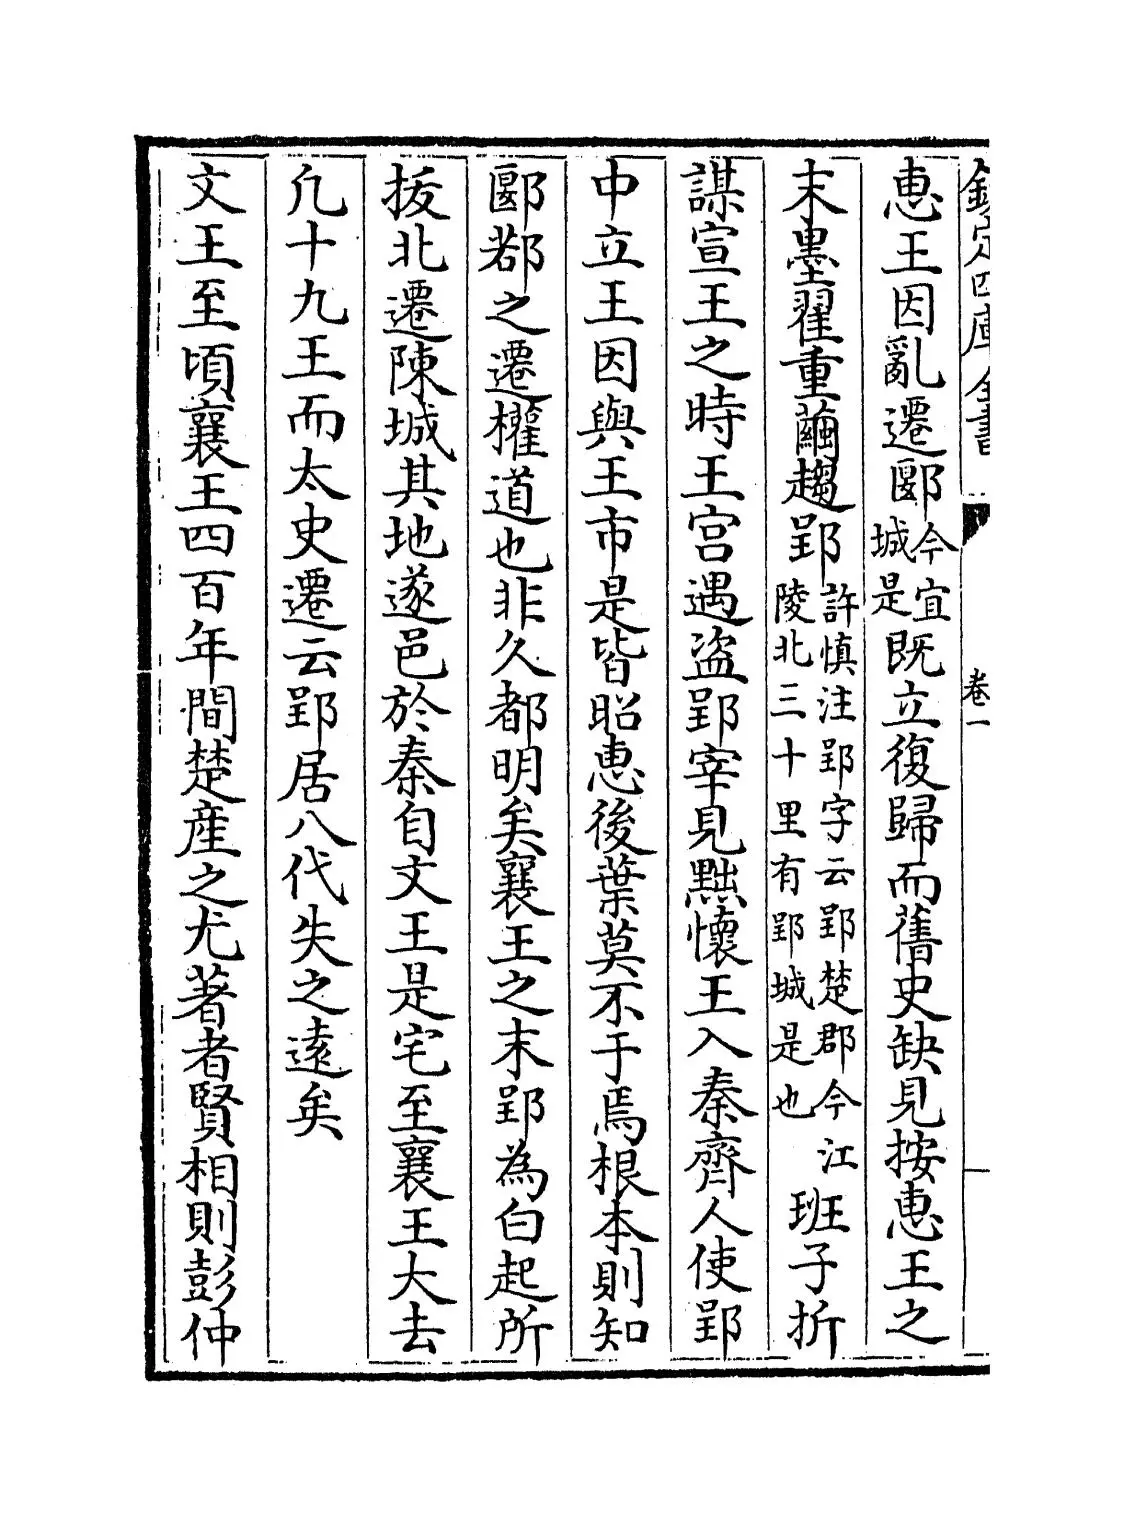 欽定四庫全書
卷一
惠王因亂遷郾今宜城是既立復歸而舊史缺見按惠王之
末墨翟重繭趨郢許慎注郢字云郢楚郡今江陵北三十里有郢城是也班子折
謀宣王之時王宫遇盗郢宰見黜懷王入秦齊人使郢
中立王因與王市是皆昭惠後葉莫不于焉根本則知
郾鄀之遷權道也非久都明矣襄王之末郢為白起所
拔北遷陳城其地遂邑於秦自文王是宅至襄王大去
凡十九王而太史遷云郢居八代失之遠矣
文王至頃襄王四百年間楚産之尤著者賢相則彭仲